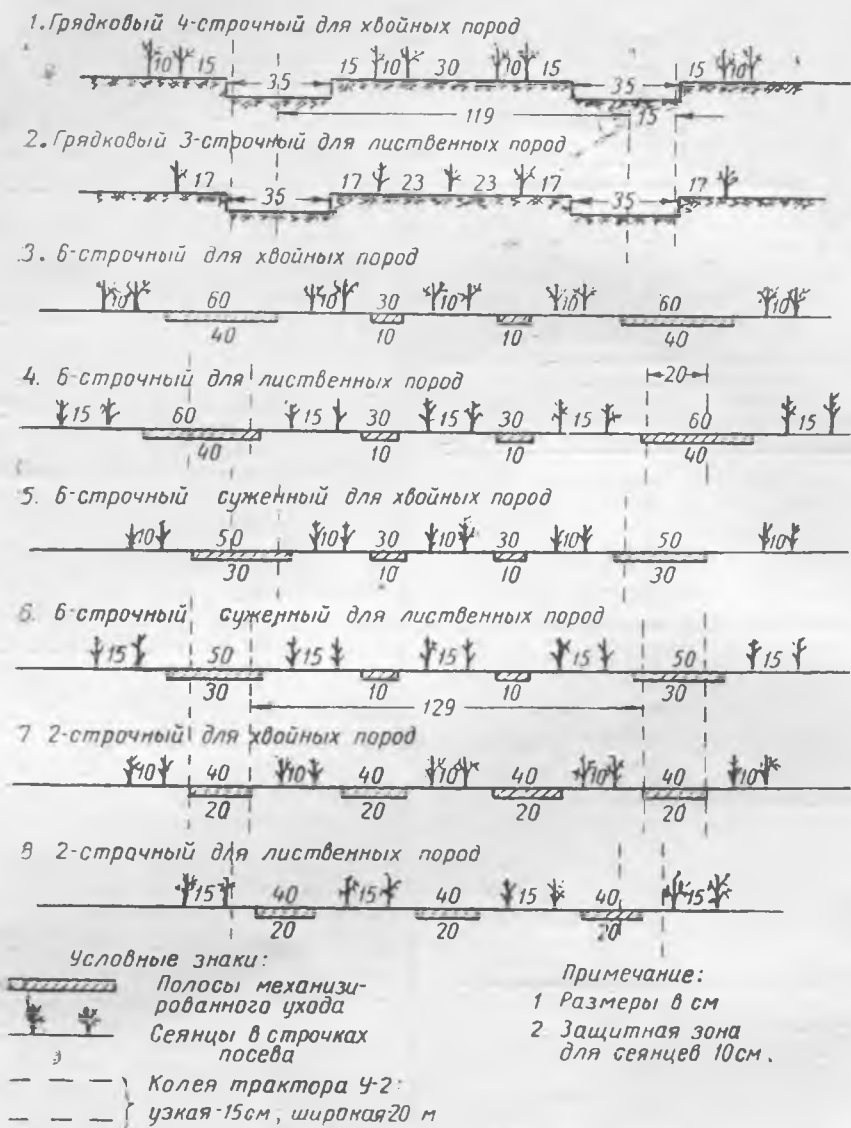 1. Грядковый 4-строчный для хвойных пород
10 15 35 15 10 30 10 15 35 15 10
119 15
2. Грядковый 3-строчный для лиственных пород
17 35 17 23 23 17 35 17
3. 6-строчный для хвойных пород
10 60 10 30 10 10 60 10
40 10 10 40
4. 6-строчный для лиственных пород
20
15 60 15 30 15 30 15 60 15
40 10 10 40
5. 6-строчный суженный для хвойных пород
10 50 10 30 10 30 10 50 10
30 10 10 30
6. 6-строчный суженный для лиственных пород
15 50 15 15 15 50 15
30 10 10 30
129
7 2-строчный для хвойных пород
10 40 10 40 10 40 10 40 10
20 20 20 20
8 2-строчный для лиственных пород
15 40 15 40 15 40 15
20 20 20
Условные знаки:
Полосы механизи-
рованного ухода
Сеянцы в строчках
посева
Колея трактора У-2:
узкая-15см, широкая-20 м
Примечание:
1 Размеры в см
2 Защитная зона
для сеянцев 10см.